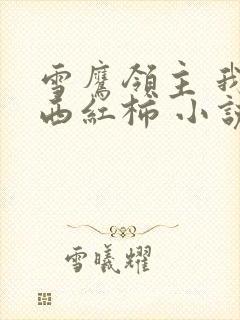 雪鷹領主 我
西紅柿 小說
雪曦耀